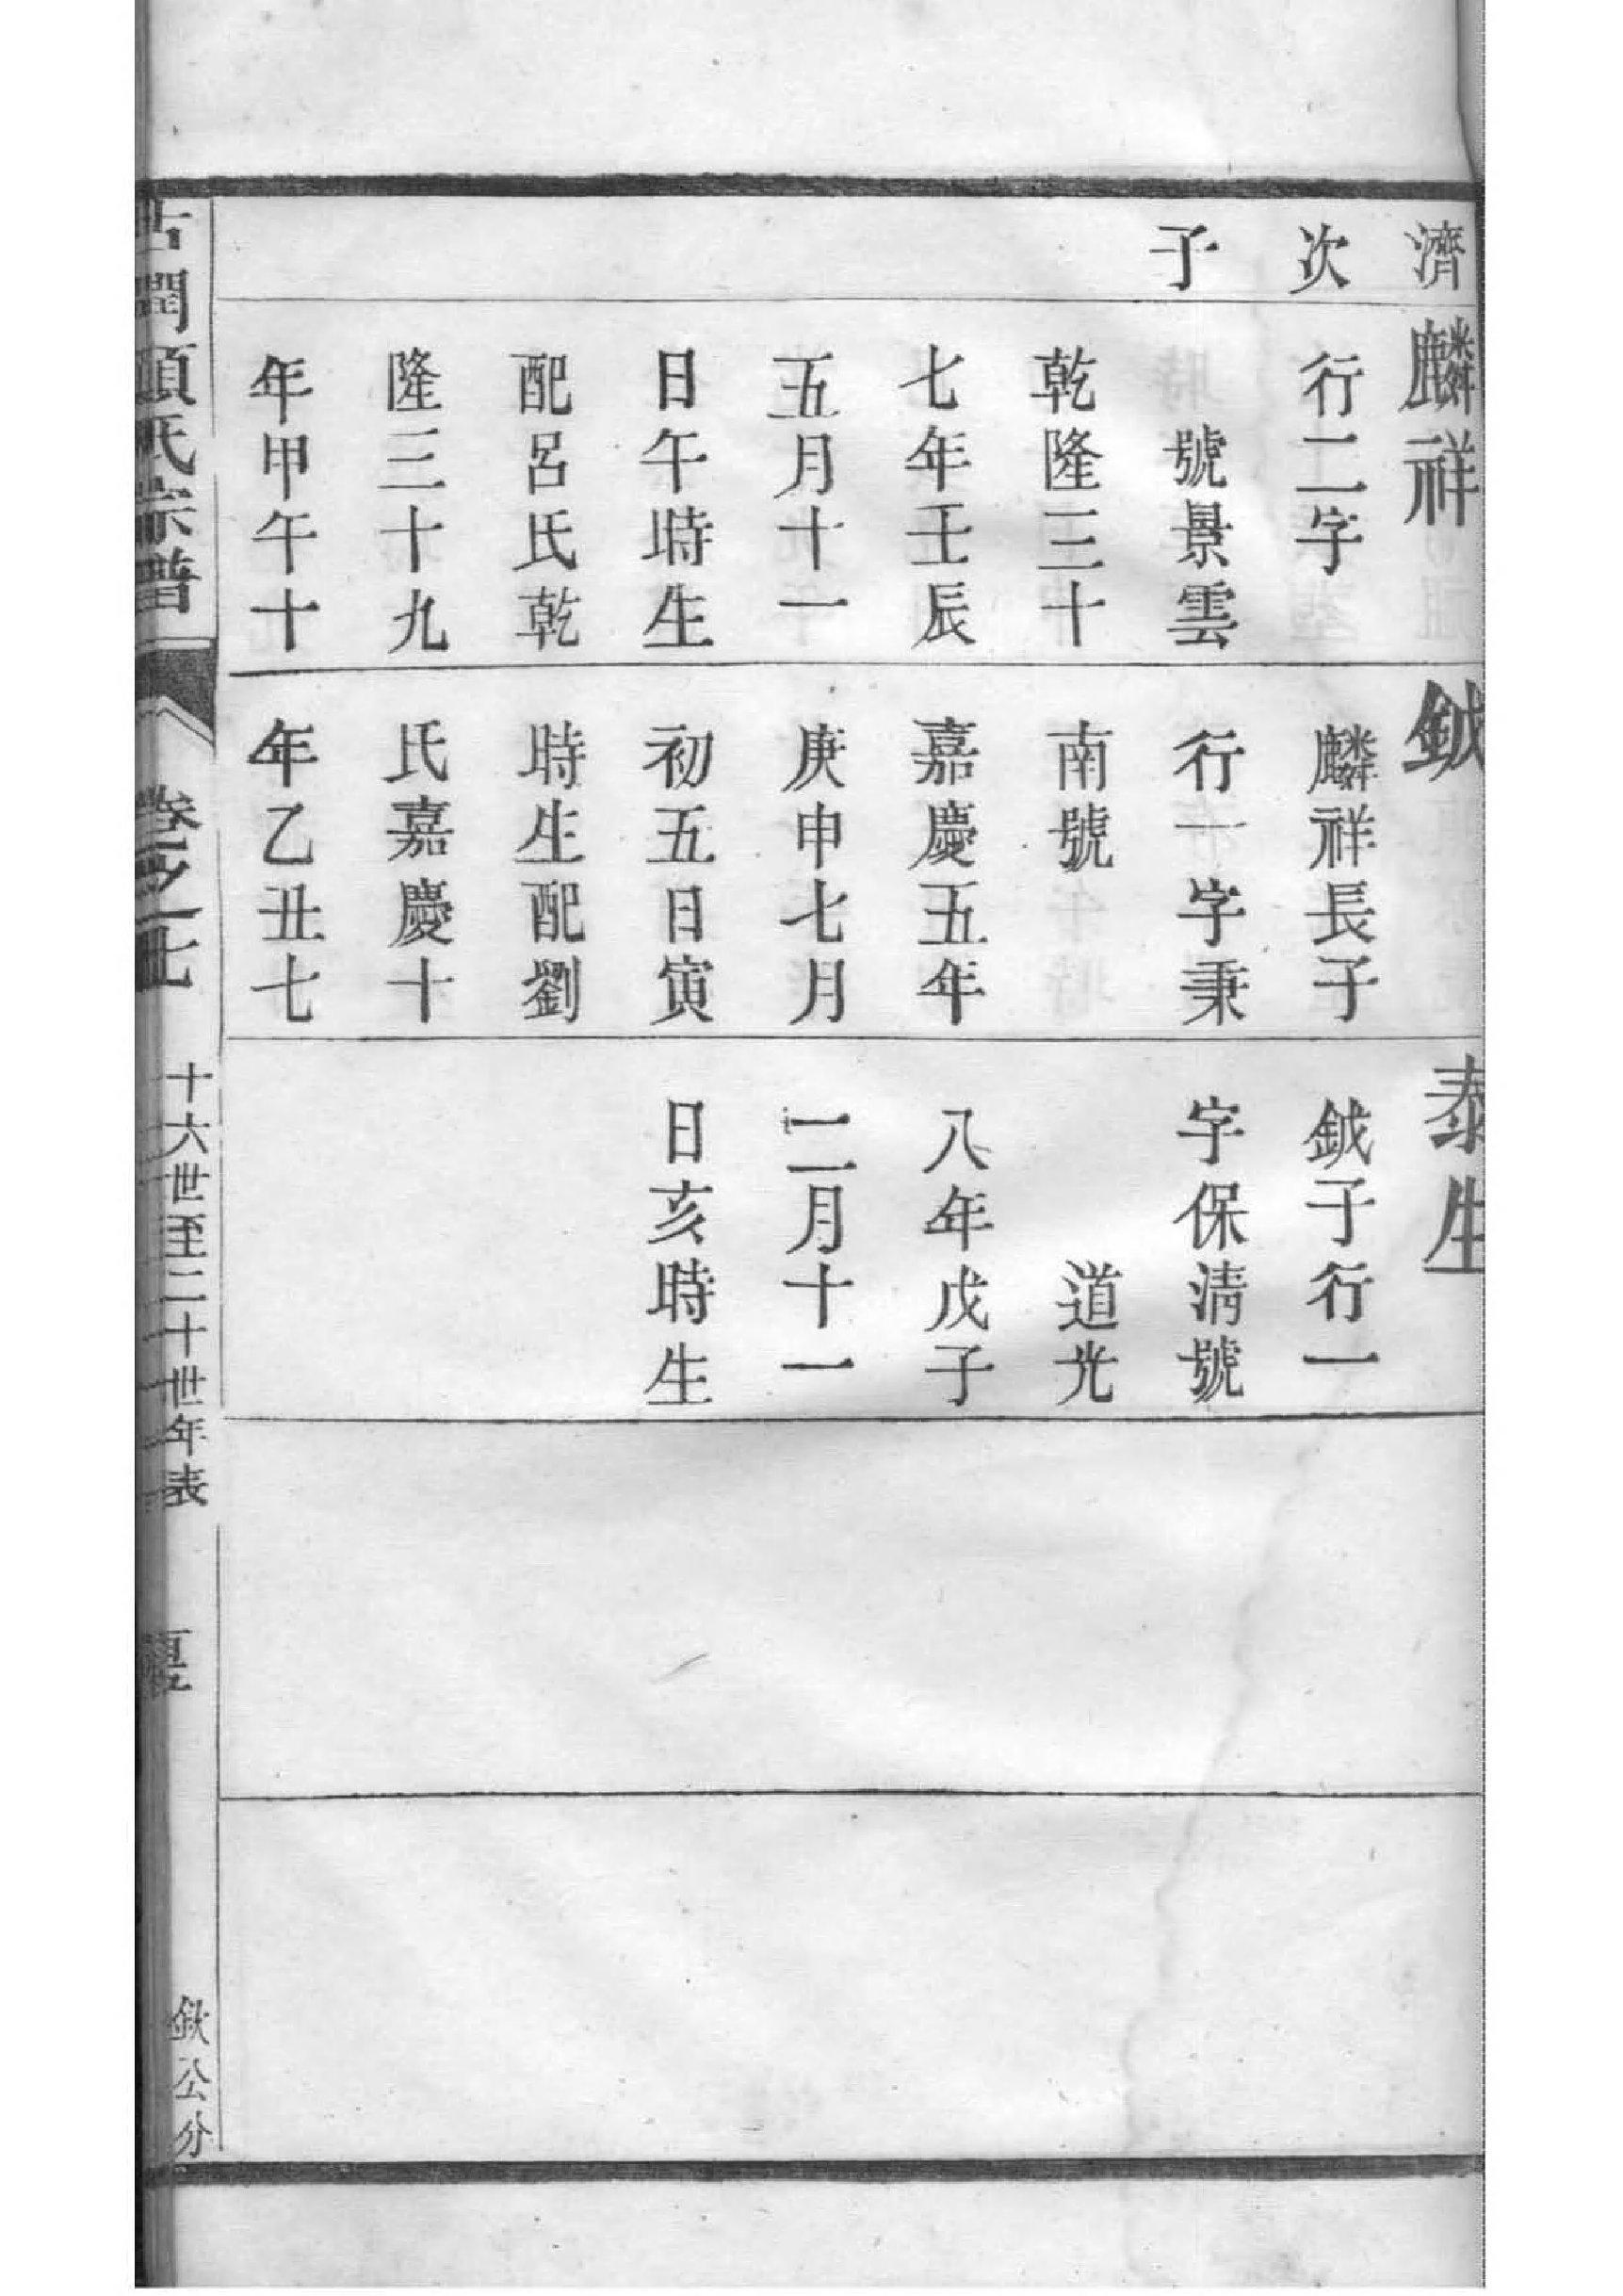 濟
次
子
麟祥
行二字
號景雲
乾隆三十
七年壬辰
五月十一
日午時生
配呂氏乾
隆三十九
年甲午十
鉞
麟祥長子
行一字秉
南號
嘉慶五年
庚申七月
初五日寅
時生配劉
氏嘉慶十
年乙丑七
泰生
鉞子行一
字保淸號
道光
八年戊子
二月十一
日亥時生
古潤顧氏宗譜
卷之
十六世至二十世年表
欽公分